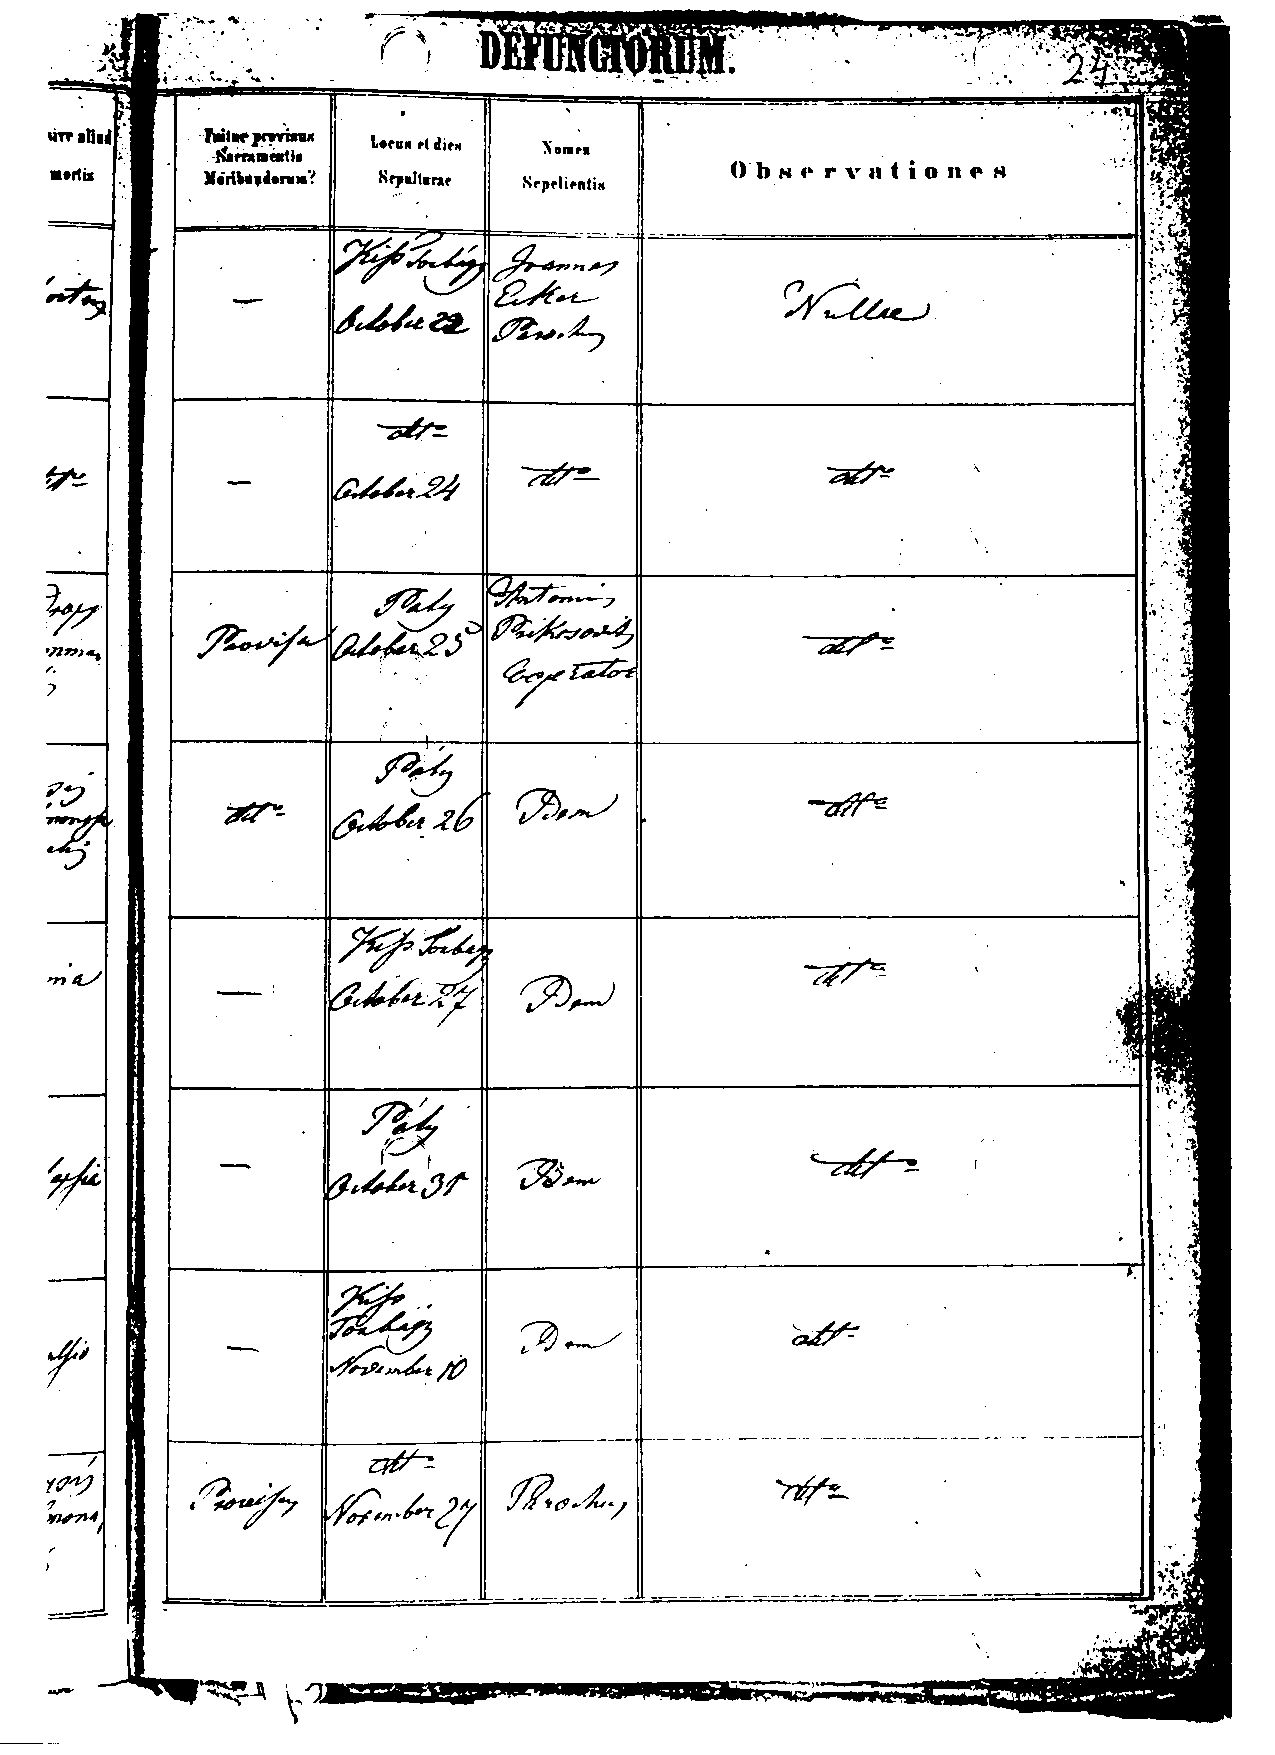 DEFUNCTORUM.
24
Fuitne provisus
Sacramentis
Moribundorum?
Locus et dies
Sepulturae
Nomen
Sepelientis
Observationes
mortis
— Kiss Torbágy
October 22
Joannes
Ecker
Parochus
Nullae
— dtto
October 24
dtto
dtto
Provisa
Páty
October 25
Antonius
Cooperator
dtto
dtto
Páty
October 26
Idem
dtto
— Kiss Torbágy
October 27
Idem
dtto
— Páty
October 31
Idem
dtto
— Kiss
Torbágy
November 10
Idem
dtto
Provisus
dtto
November 27
Parochus
dtto